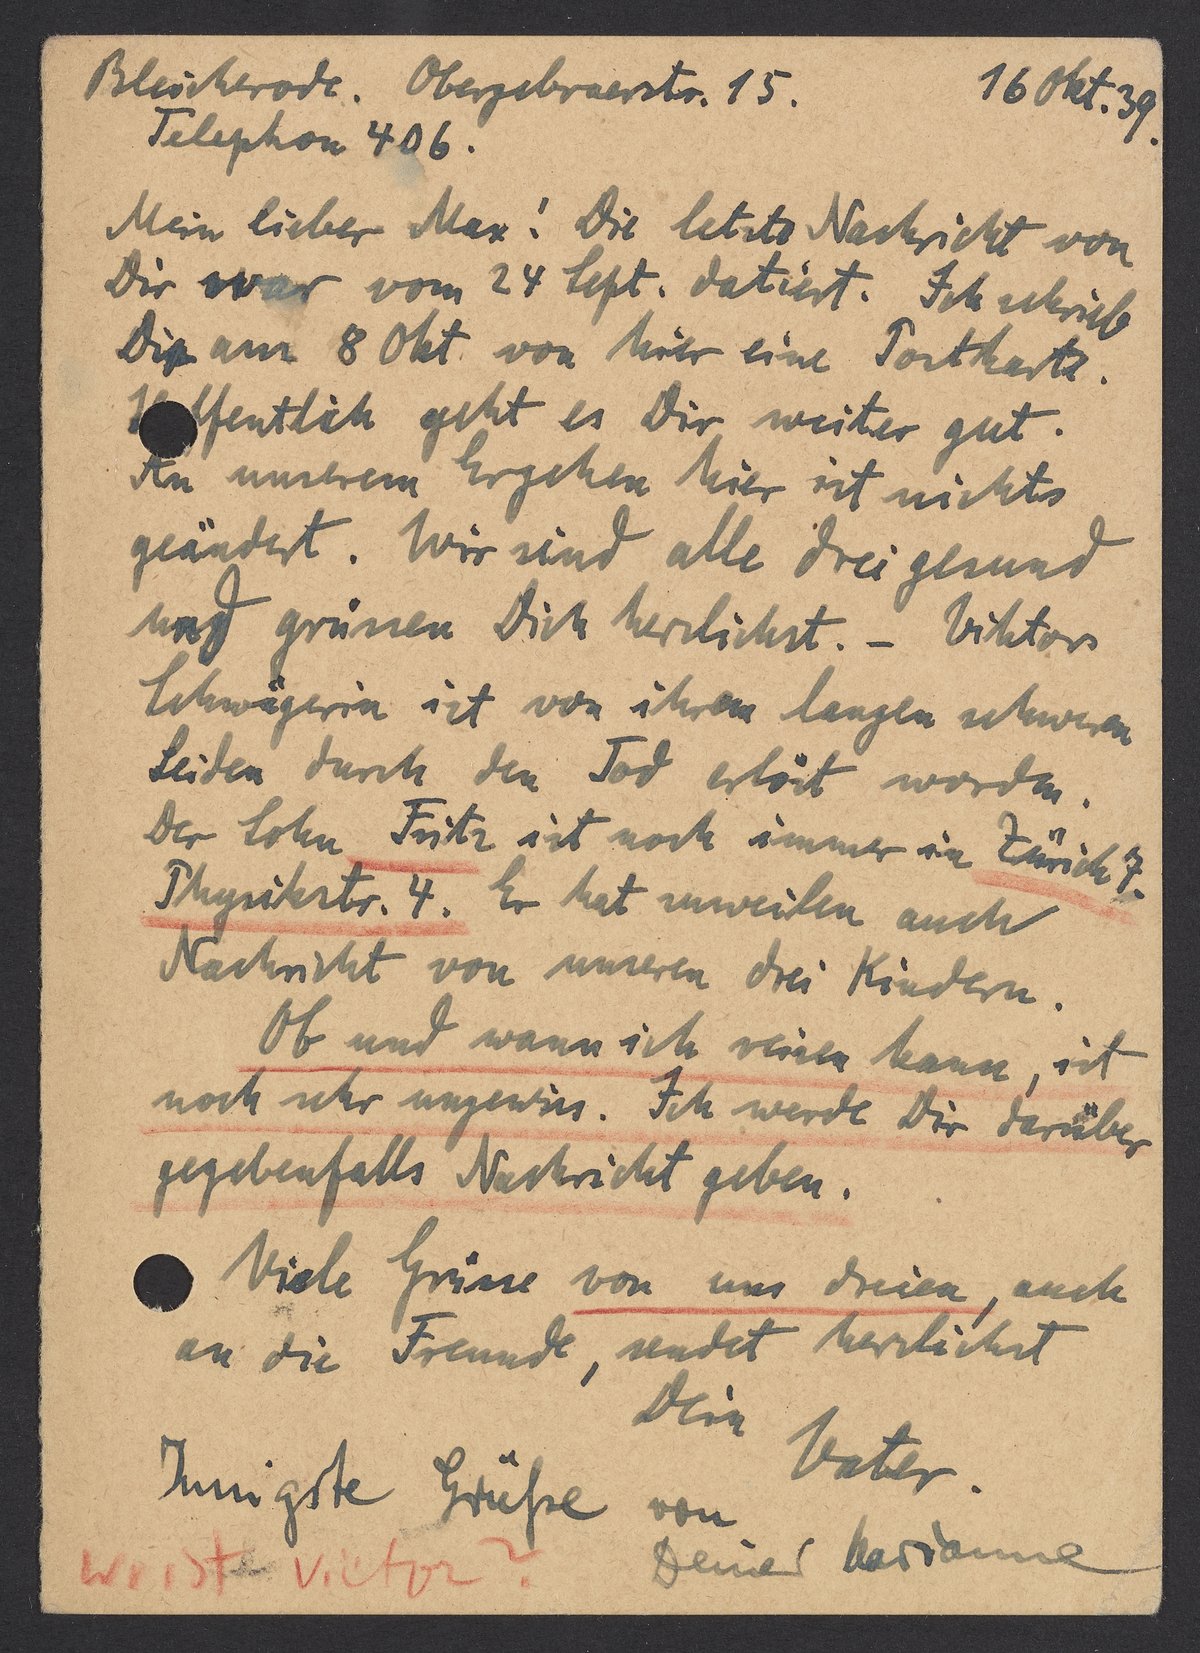 Bleicherode. Obergebraerstr. 15. 16 Okt. 39.
Telephon 406.
Mein lieber Max! Die letzte Nachricht von
Dir war vom 24 Sept. datiert. Ich schrieb
Dir am 8 Okt von hier eine Postkarte.
Hoffentlich geht es Dir weiter gut.
An unserem Ergehen hier ist nichts
geändert. Wir sind alle drei gesund
und grüssen Dich herzlichst. – Viktors
Schwägerin ist von ihrem langen schweren
Leiden durch den Tod erlöst worden.
Der Sohn Fritz ist noch immer in Zürich 7.
Physikstr. 4. Er hat zuweilen auch
Nachricht von unseren drei Kindern.
Ob und wann ich reisen kann, ist
noch sehr ungewiss. Ich werde Dir darüber
gegebenfalls Nachricht geben.
Viele Grüsse von uns dreien, auch
an die Freunde, sendet herzlichst
Dein Vater.
Innigste Grüße von
Deiner Marianne
wo ist Victor?